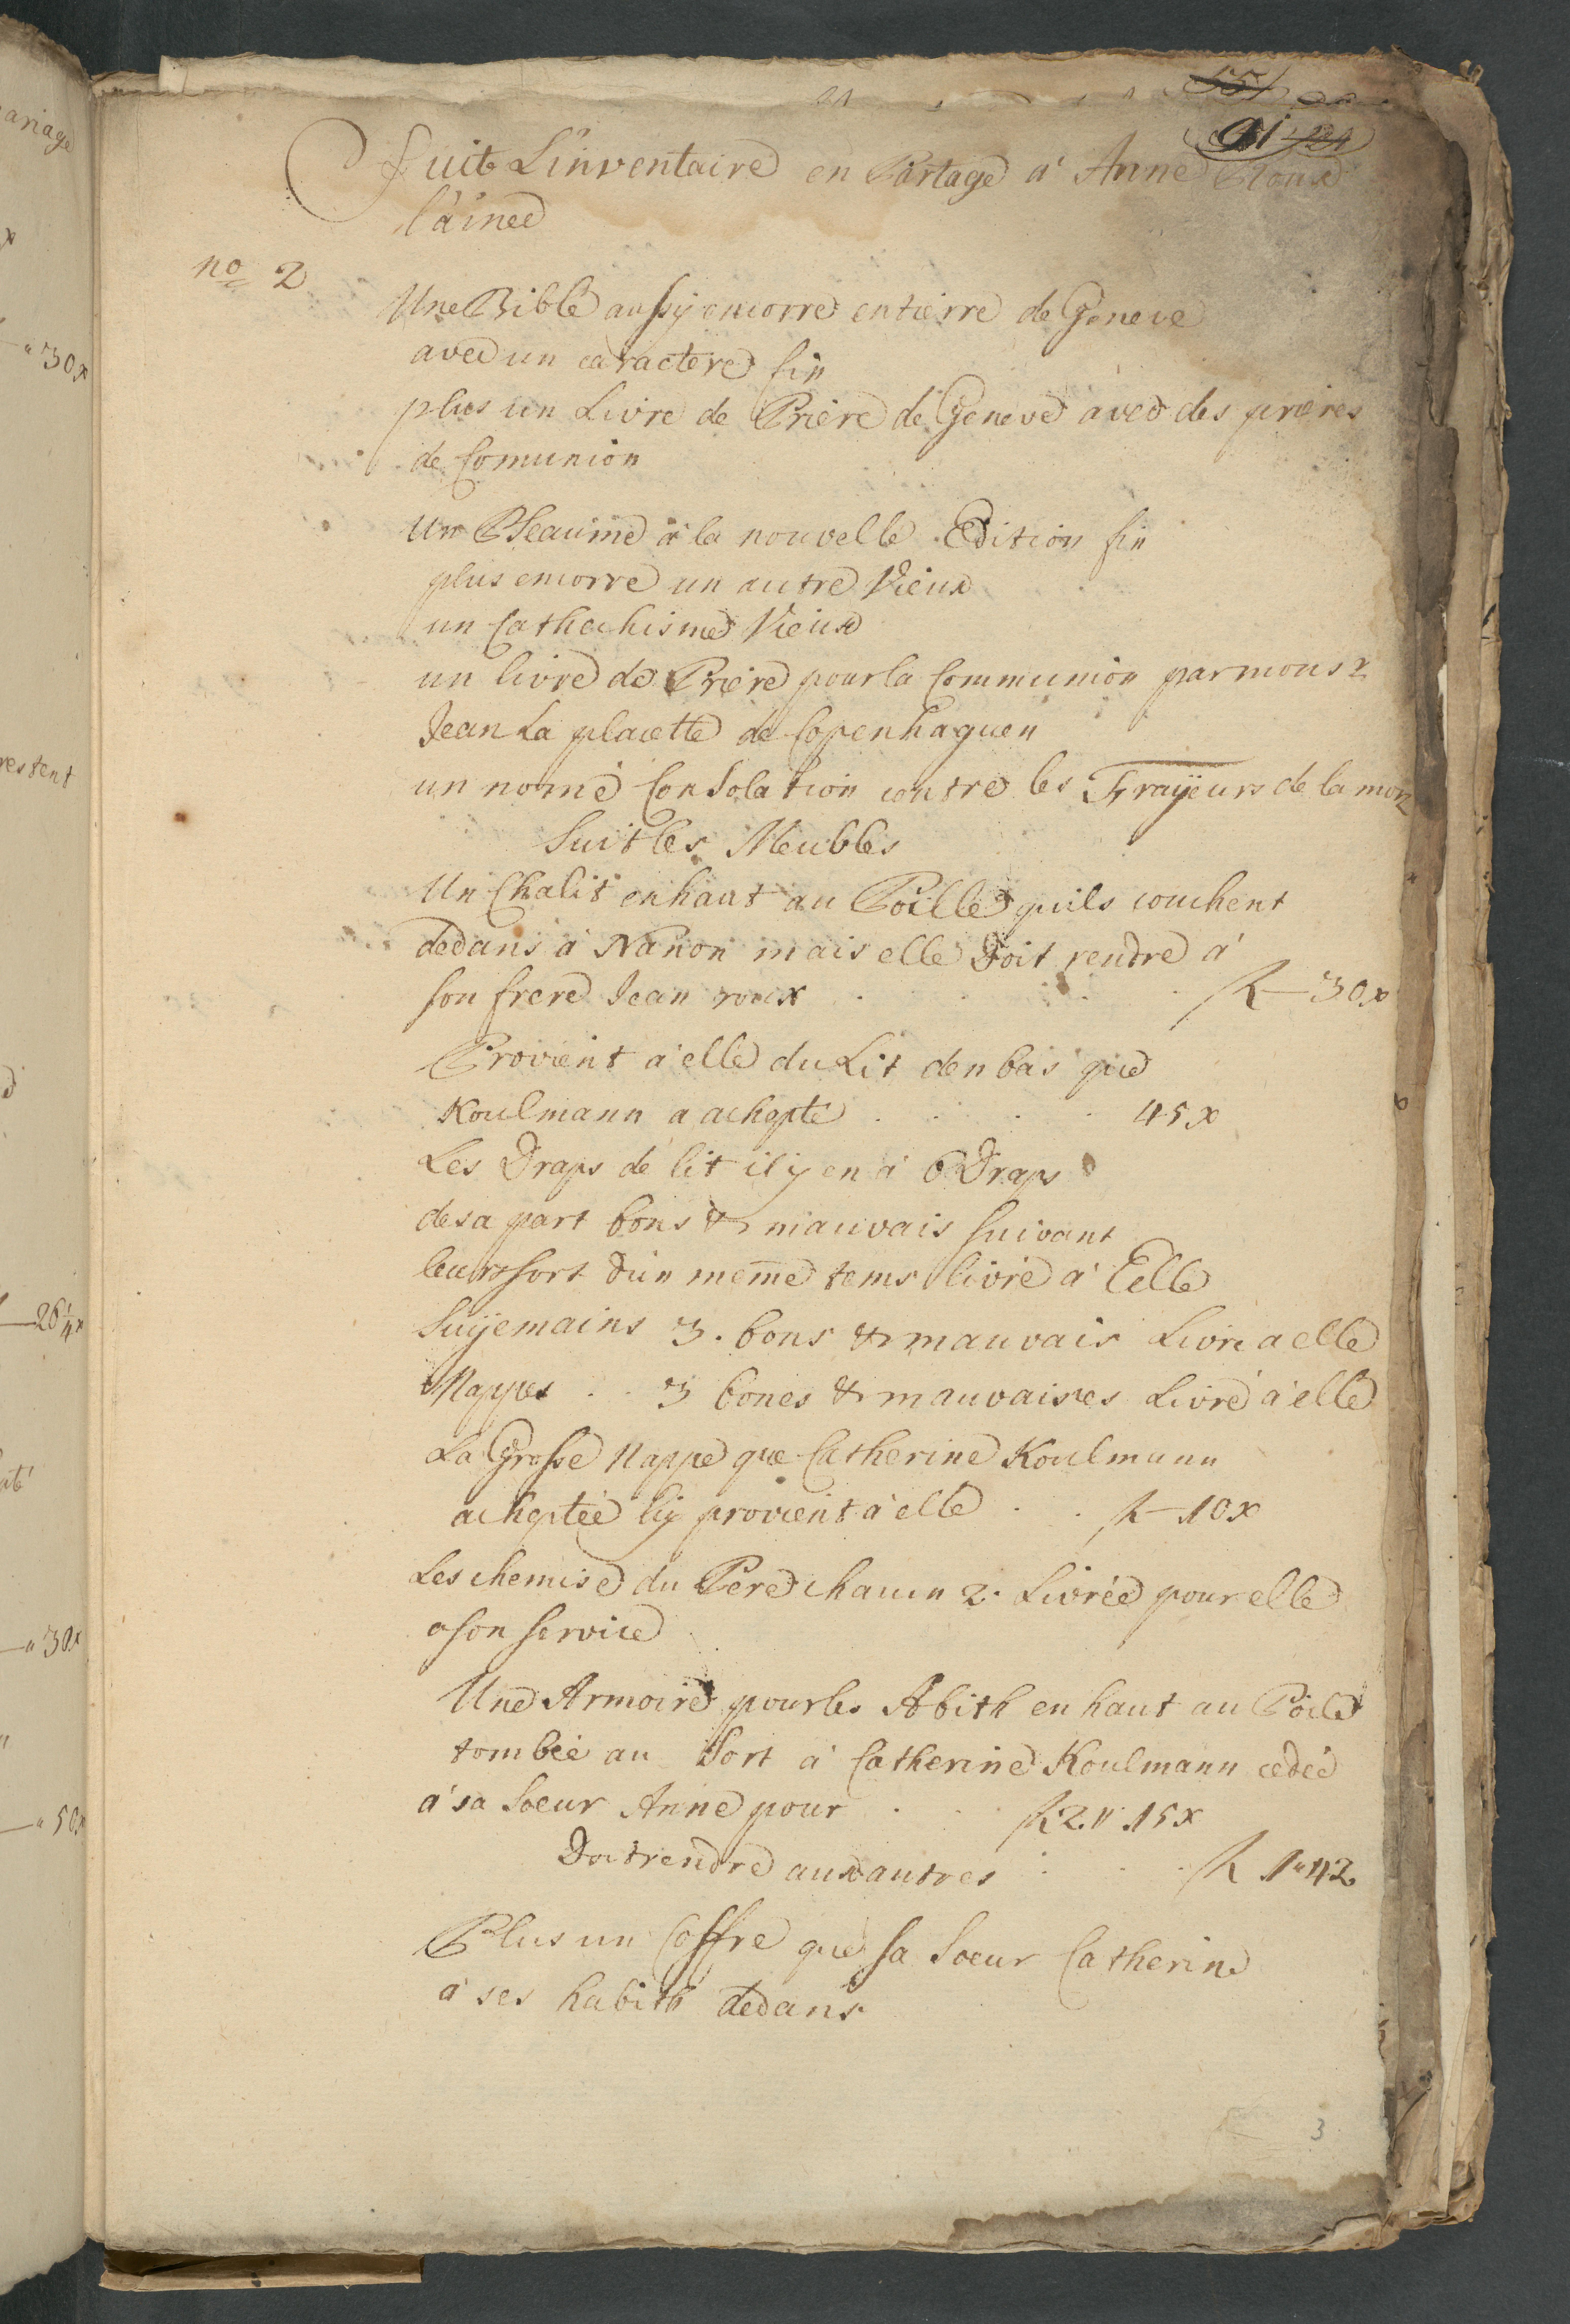 91
Suit L'inventaire en Partage a' Anne Roux
l'ainee
no 2
Une Bible aussy encorre entierre de Geneve
avec un caractere fin
plus un Livre de Priere de Geneve avec des prieres
de Comunion
Un Pseaume a la nouvelle Edition fin
plus encorre un autre Vieux
un Cathechisme Vieux
un livre de Priere pour la Communion par monsr
Jean La placette de Copenhaguen
un nomé Consolation contre les Frayeurs de la mort
Suit les Meubles
Un Chalit en haut au Poille quils couchent
dedans a Nanon mais elle Doit rendre a'
son frere Jean roux . . . . R—30x
Provient a elle du Lit den bas que
Koulmann a achepté . . . . 45x
Les Draps de lit il y en a 6 Draps
de sa part bons & mauvais suivant
leur sort d'un meme tems livré a' Elle
Suyemains 3. bons & mauvais Livré a elle
Nappes . . 3 bones & mauvaises Livré a' elle
La Grosse Nappe que Catherine Koulmann
acheptée luy provient a' elle . . R—10x
Les chemise du Pere chacun 2. Livrée pour elle
a son service
Une Armoire pour les Abith en haut au Poile
tombée au Sort a' Catherine Koulmann cedée
a' sa Soeur Anne pour . . . R 2.,, 15x
Doit rendre aux autres . . . R 1"42
Plus un Coffre que sa Soeur Catherine
a' ses habith dedans
3
ariage
30x
restent
26¼x
30x
50x